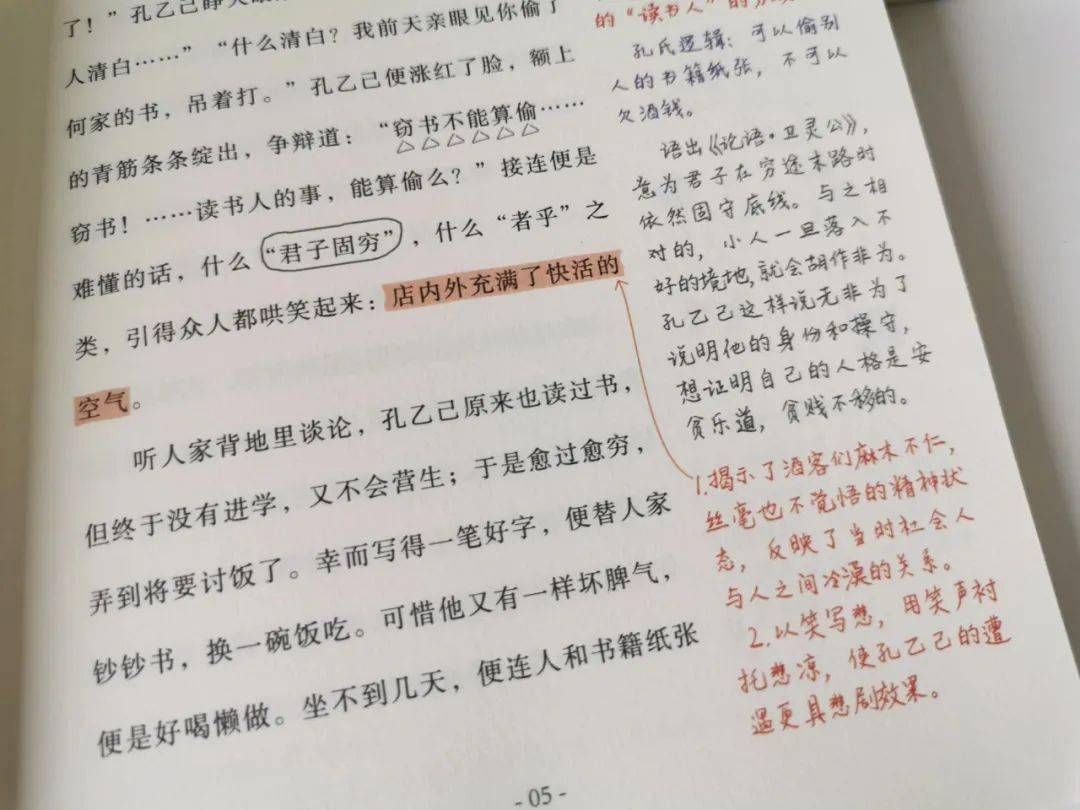 了！”孔乙己睁大眼
人清白……”“什么清白？我前天亲眼见你偷了
何家的书，吊着打。”孔乙己便涨红了脸，额上
的青筋条条绽出，争辩道：“窃书不能算偷……
窃书！……读书人的事，能算偷么？”接连便是
难懂的话，什么“君子固穷”，什么“者乎”之
类，引得众人都哄笑起来：店内外充满了快活的
空气。
听人家背地里谈论，孔乙己原来也读过书，
但终于没有进学，又不会营生；于是愈过愈穷，
弄到将要讨饭了。幸而写得一笔好字，便替人家
钞钞书，换一碗饭吃。可惜他又有一样坏脾气，
便是好喝懒做。坐不到几天，便连人和书籍纸张
- 05 -
的“读书人”的
孔氏逻辑：可以偷别
人的书籍纸张，不可以
欠酒钱。
语出《论语·卫灵公》，
意为君子在穷途末路时
依然固守底线。与之相
对的，小人一旦落入不
好的境地，就会胡作非为。
孔乙己这样说无非为了
说明他的身份和操守，
想证明自己的人格是安
贫乐道，贫贱不移的。
1.揭示了酒客们麻木不仁，
丝毫也不觉悟的精神状
态，反映了当时社会人
与人之间冷漠的关系。
2.以笑写悲，用笑声衬
托悲凉，使孔乙己的遭
遇更具悲剧效果。